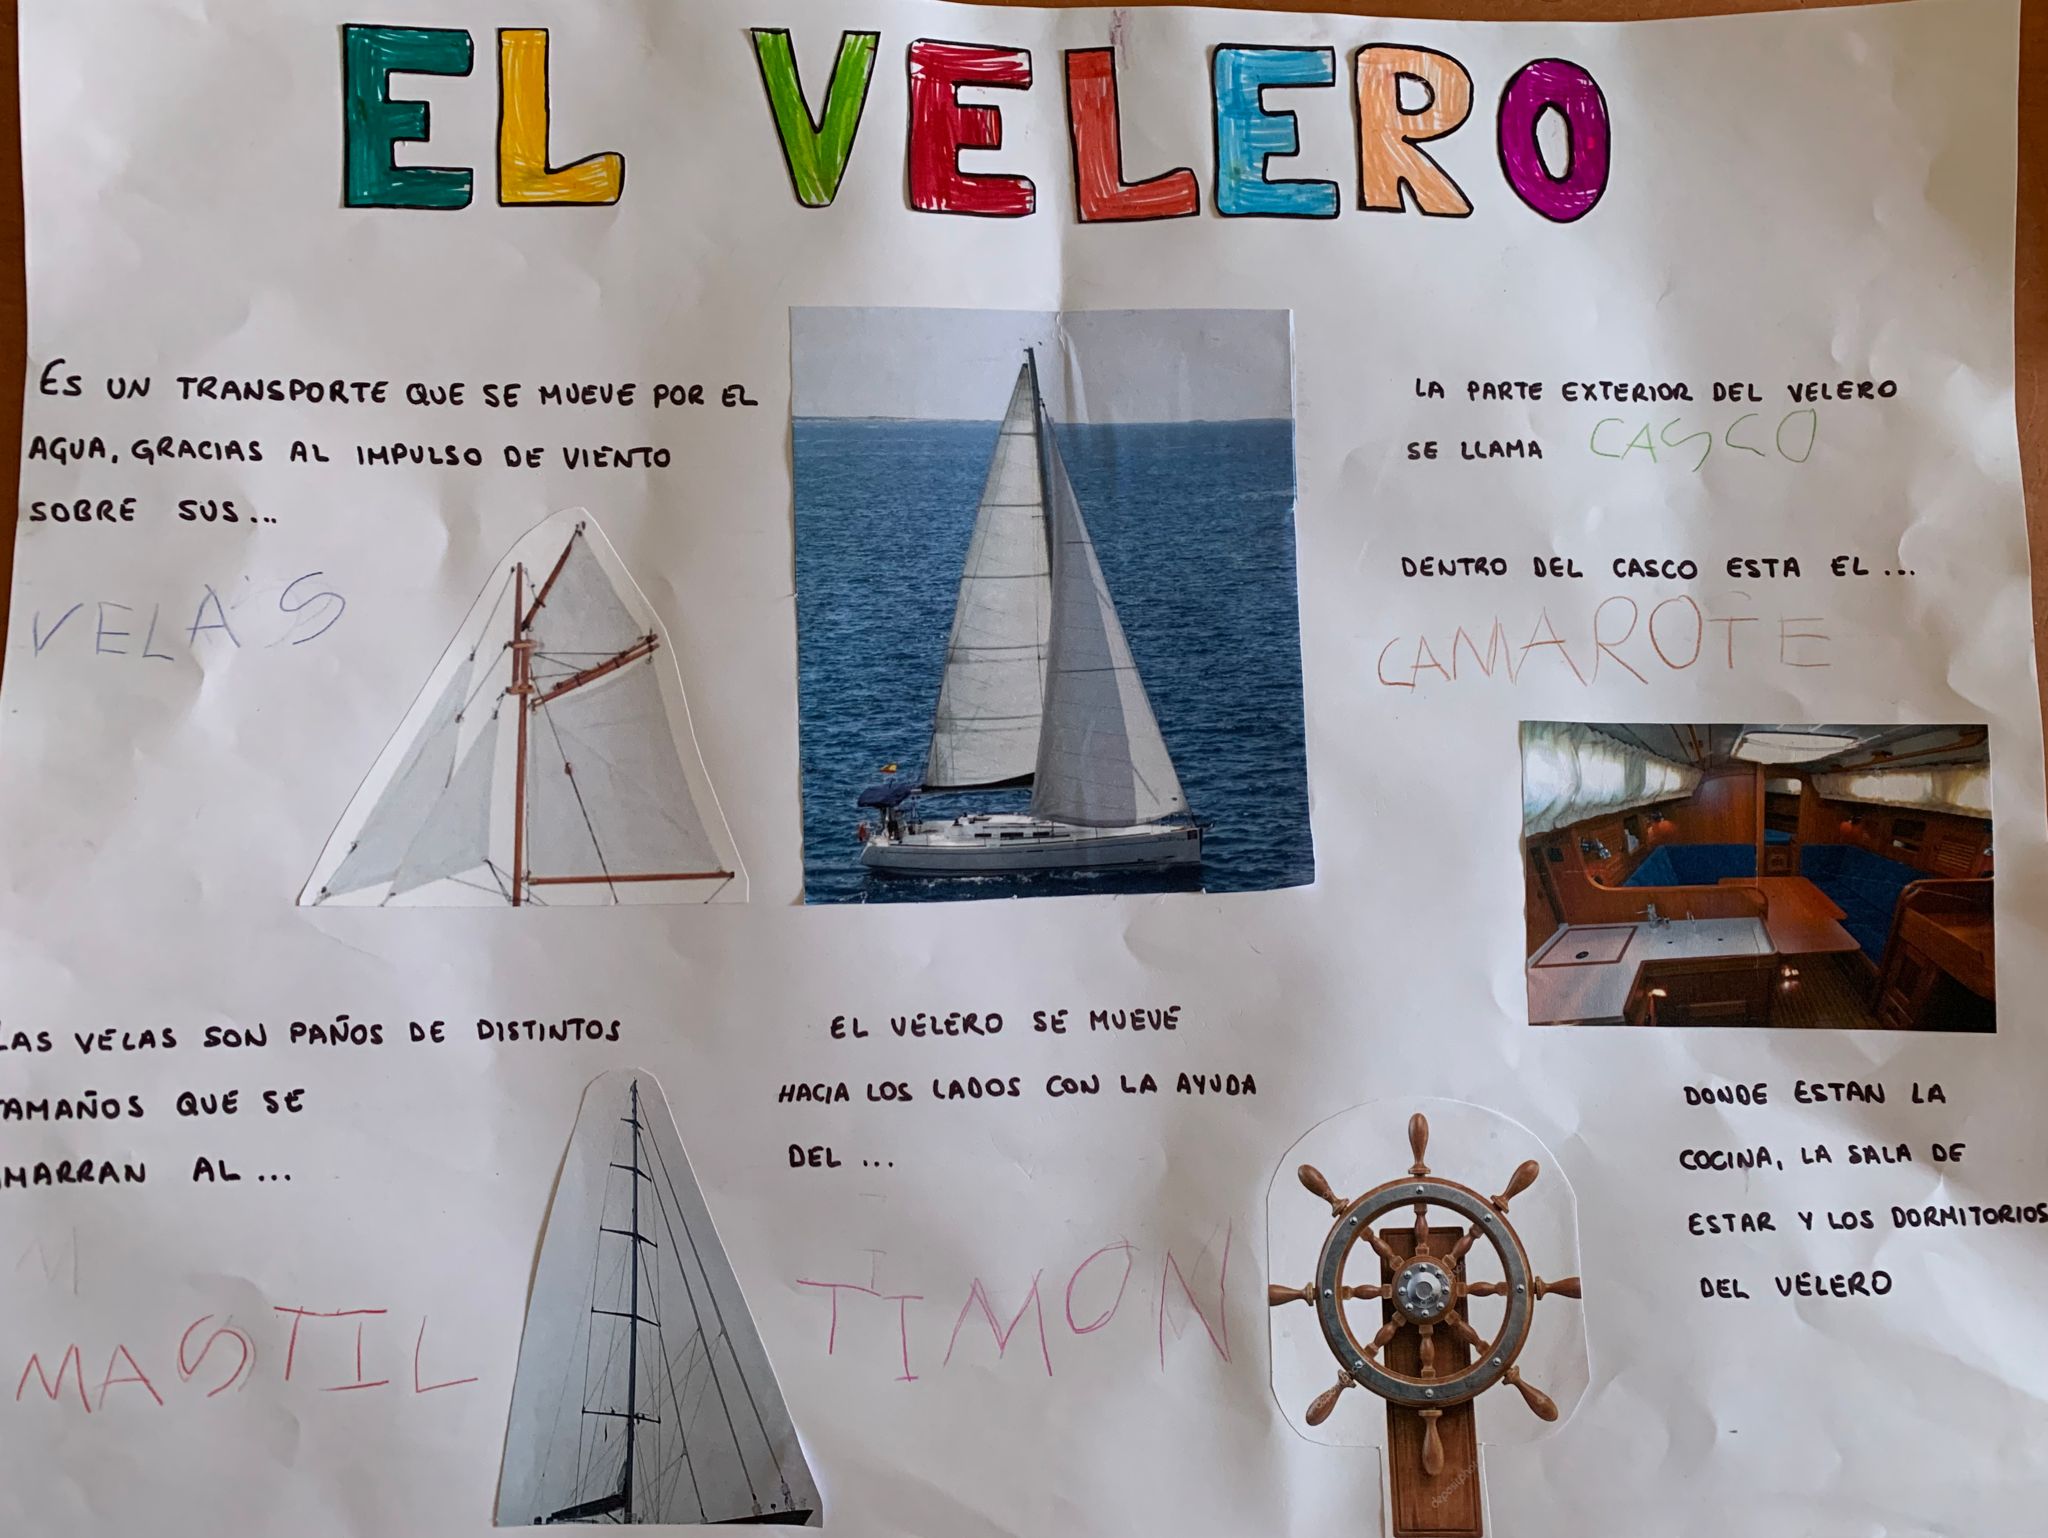 EL VELERO
ES UN TRANSPORTE QUE SE MUEVE POR EL
AGUA, GRACIAS AL IMPULSO DE VIENTO
SOBRE SUS...
VELAS
LAS VELAS SON PAÑOS DE DISTINTOS
TAMAÑOS QUE SE
AMARRAN AL...
MASTIL
EL VELERO SE MUEVE
HACIA LOS LADOS CON LA AYUDA
DEL ...
TIMON
LA PARTE EXTERIOR DEL VELERO
SE LLAMA CASCO
DENTRO DEL CASCO ESTA EL ...
CAMAROTE
DONDE ESTAN LA
COCINA, LA SALA DE
ESTAR Y LOS DORMITORIOS
DEL VELERO